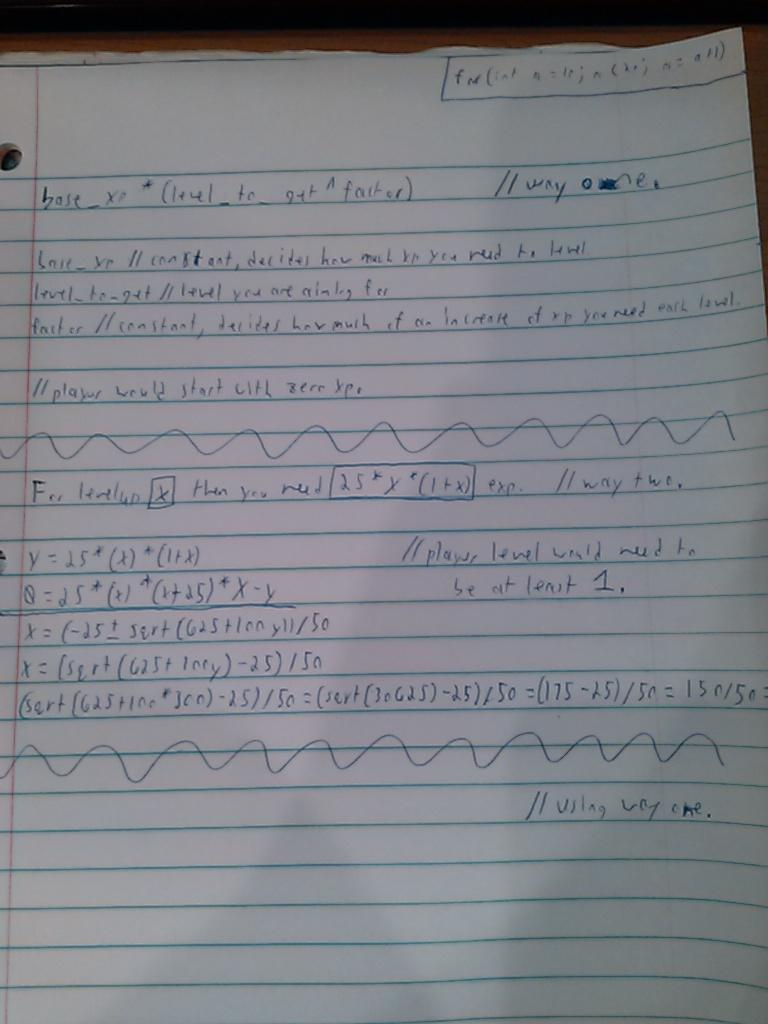 for(int a = 10; a < 20; a = a+1)
base_xp * (level_to_get ^ factor) // way one.
base_xp // constant, decides how much xp you need to level
level_to_get // level you are aiming for
factor // constant, decides how much of an increase of xp you need each level.
// player would start with zero xp.
For levelup x then you need 25*x*(1+x) exp. // way two.
y = 25*(x)*(1+x) // player level would need to
be at least 1.
0 = 25*(x)*(x+25)*x-y
x = (-25 ± sqrt(625+100y))/50
x = (sqrt(625+100y)-25)/50
(sqrt(625+100*300)-25)/50 = (sqrt(30625)-25)/50 = (175-25)/50 = 150/50 =
// using way one.